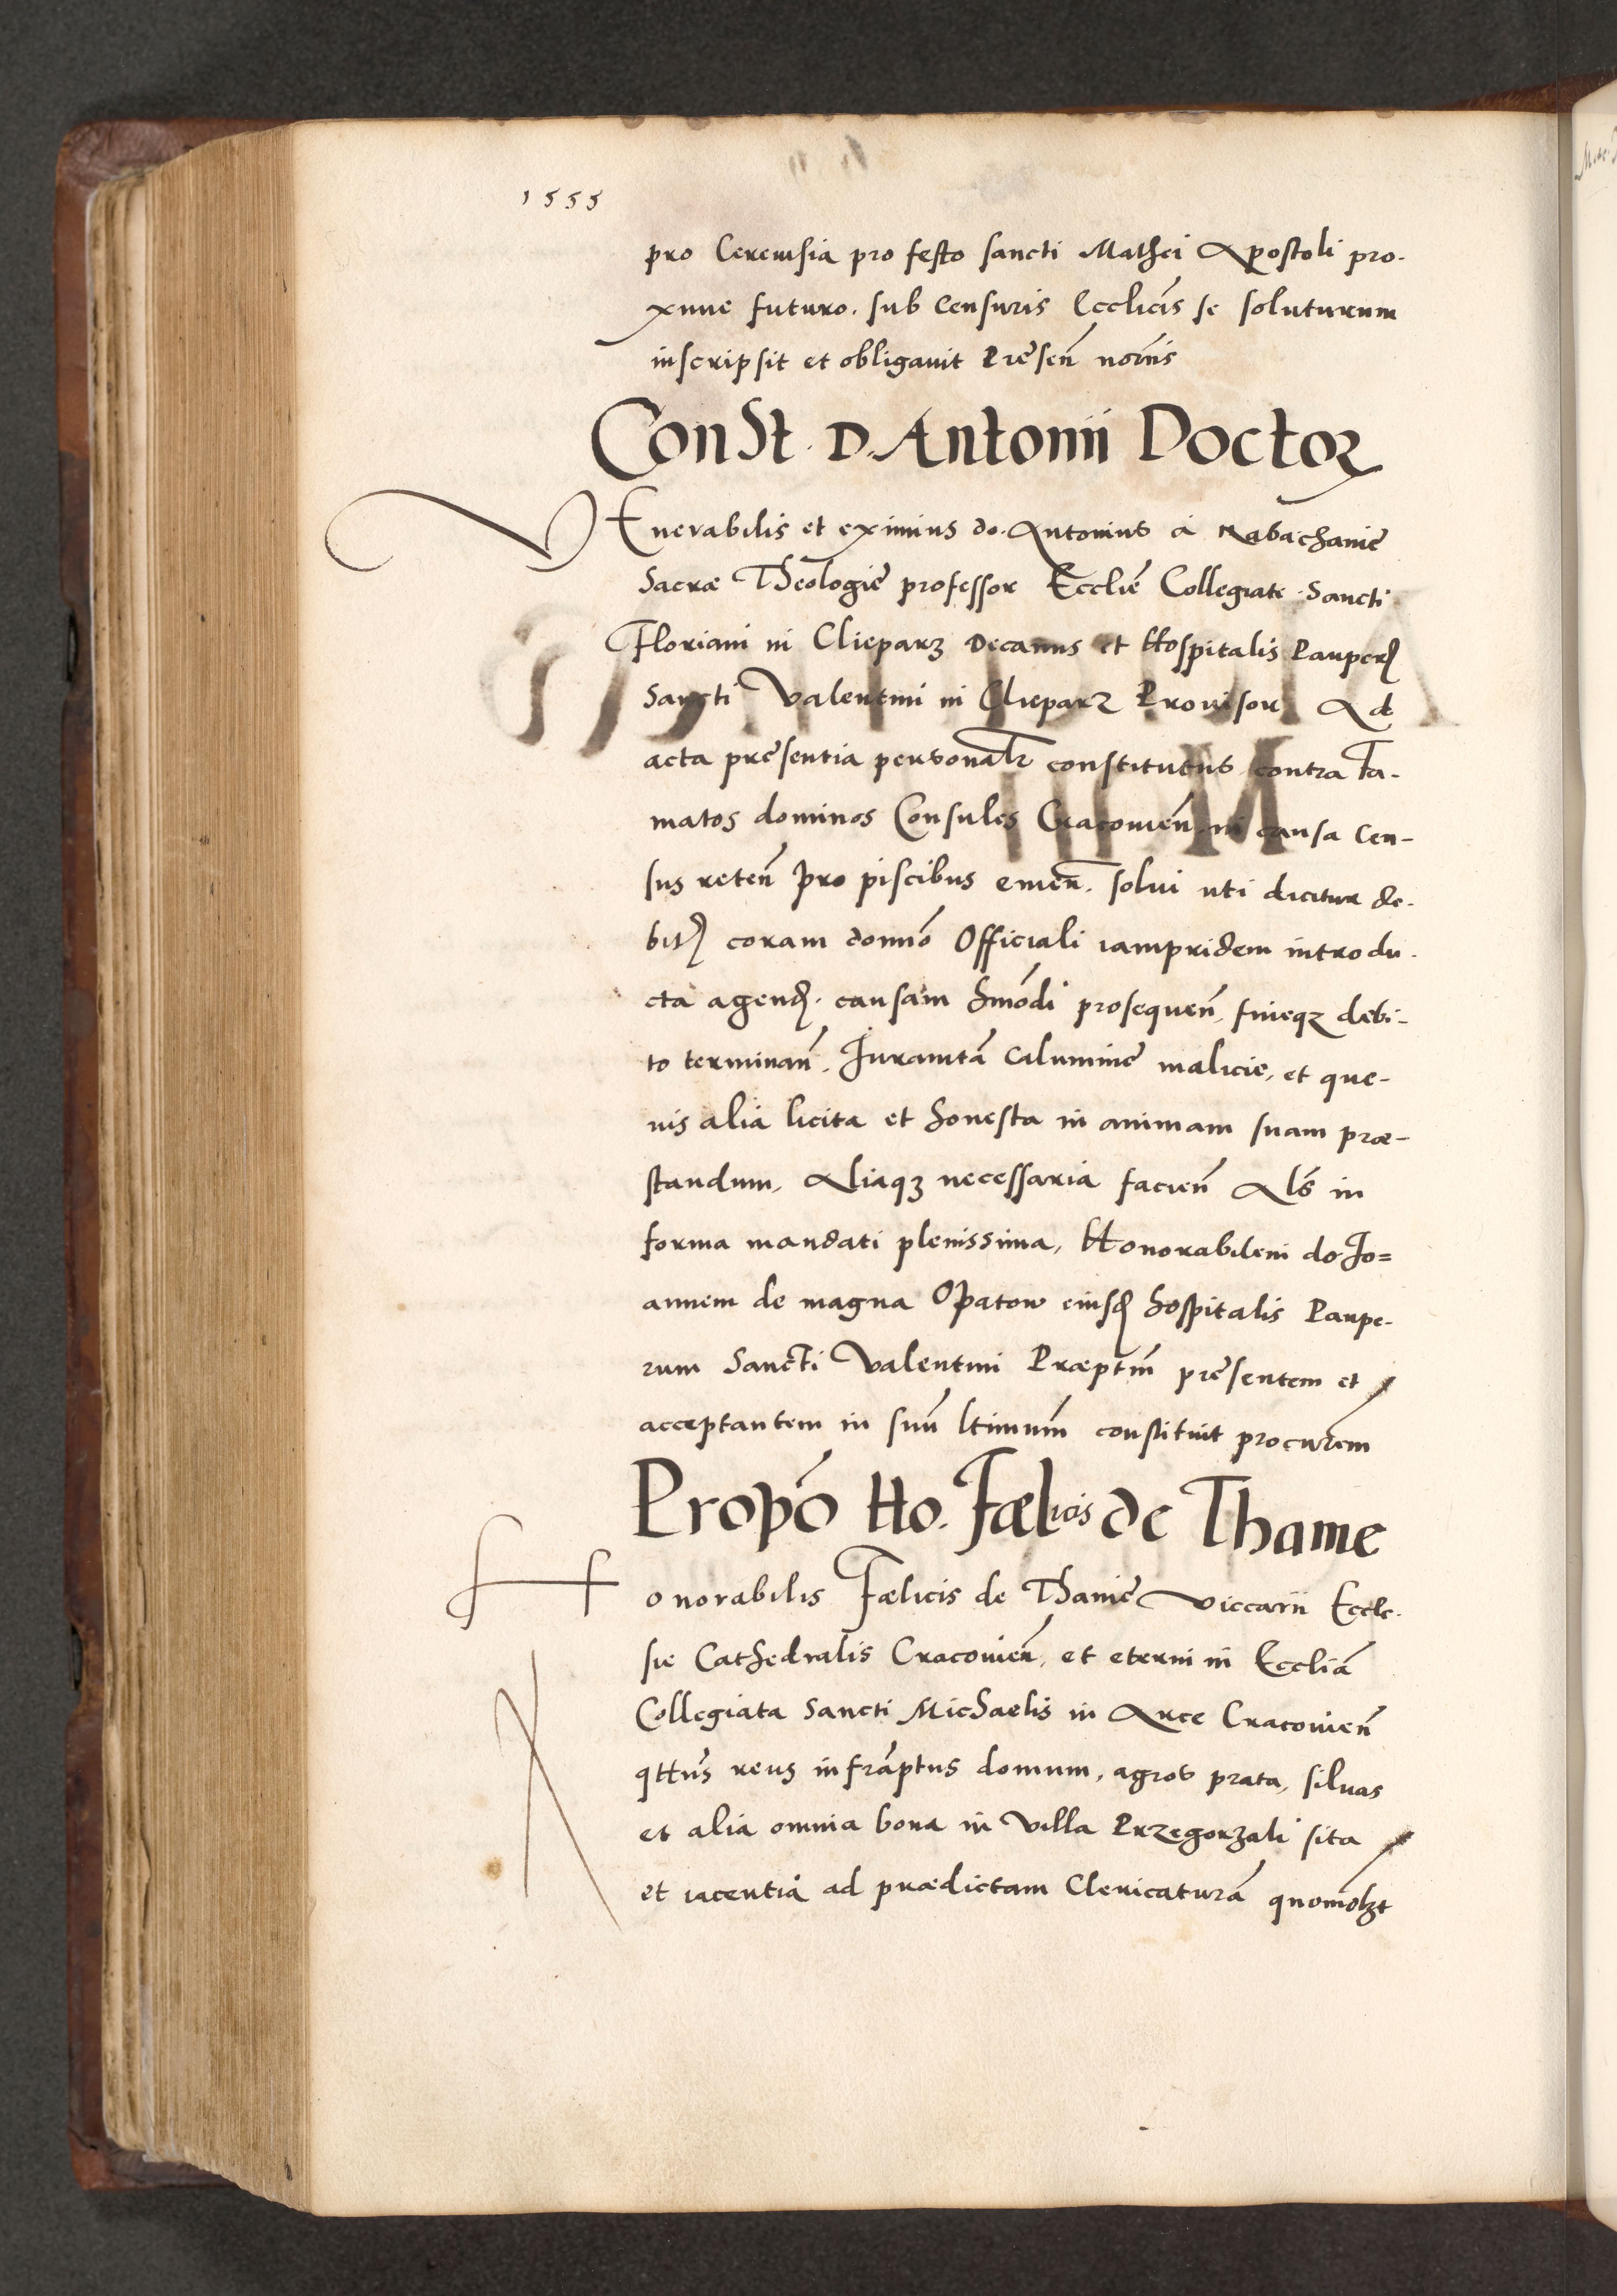 1555
pro Cerevisia pro festo sancti Mathei Apostoli pro-
xime futuro. sub Censuris Ecclicis se soluturum
inscripsit et obligavit Presen̄ nor̄nis
ConSt. D. Antonii Doctor
VEnerabilis et eximius do. Antonius à Nabachanie
Sacræ Theologie professor Ecclie Collegiate Sancti
Floriani in Clieparz Decanus et Hospitalis Pauper
Sancti Valentini in Clieparz Provisor Ad
acta presentia personalr constitutus contra fa-
matos dominos Consules Cracovien̄ in causa Cen-
sus reten̄ pro piscibus emen̄. solvi uti dicitur de-
bit coram domno Officiali iampridem introdu-
cta agend. causam hmōdi prosequen̄, fineqz debi-
to terminan̄. Juramtā Calumnie malicie, et que-
vis alia licita et honesta in animam suam præ-
standum, Aliaqz necessaria facien̄ Als in
forma mandati plenissima, Honorabilem do. Jo=
annem de magna Opatow eiusd hospitalis Paupe-
rum Sancti Valentini Præptm presentem et
acceptantem in suū ltimum constituit procurem
Propō Ho. Fælicis de Thame
Honorabilis Fælicis de Thanie Viccarii Eccle-
sie Cathedralis Cracovien̄, et eterni in Eccliā
Collegiata Sancti Michaelis in Arce Cracovien̄
qttus reus infrāptus domum, agros prata, silvas
et alia omnia bona in Villa Przegorzali sita
et iacentia ad prædictam Clericaturā quomolzt